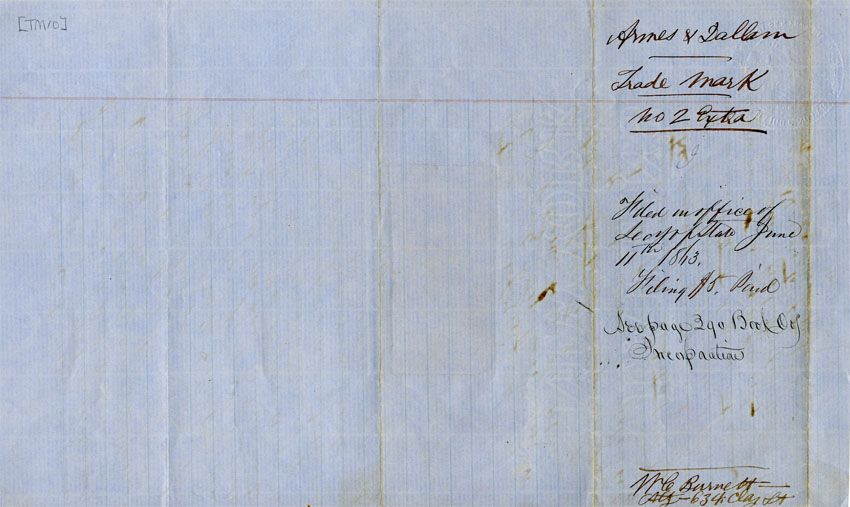 [TM10]
Armes & Dallam
Trade Mark
No 2 Extra
Filed in office of
Secy of State June
11th 1863.
Filing $5. Paid
See page 290 Book O of
Incorporation
W C Burnett
Atty 634 Clay St